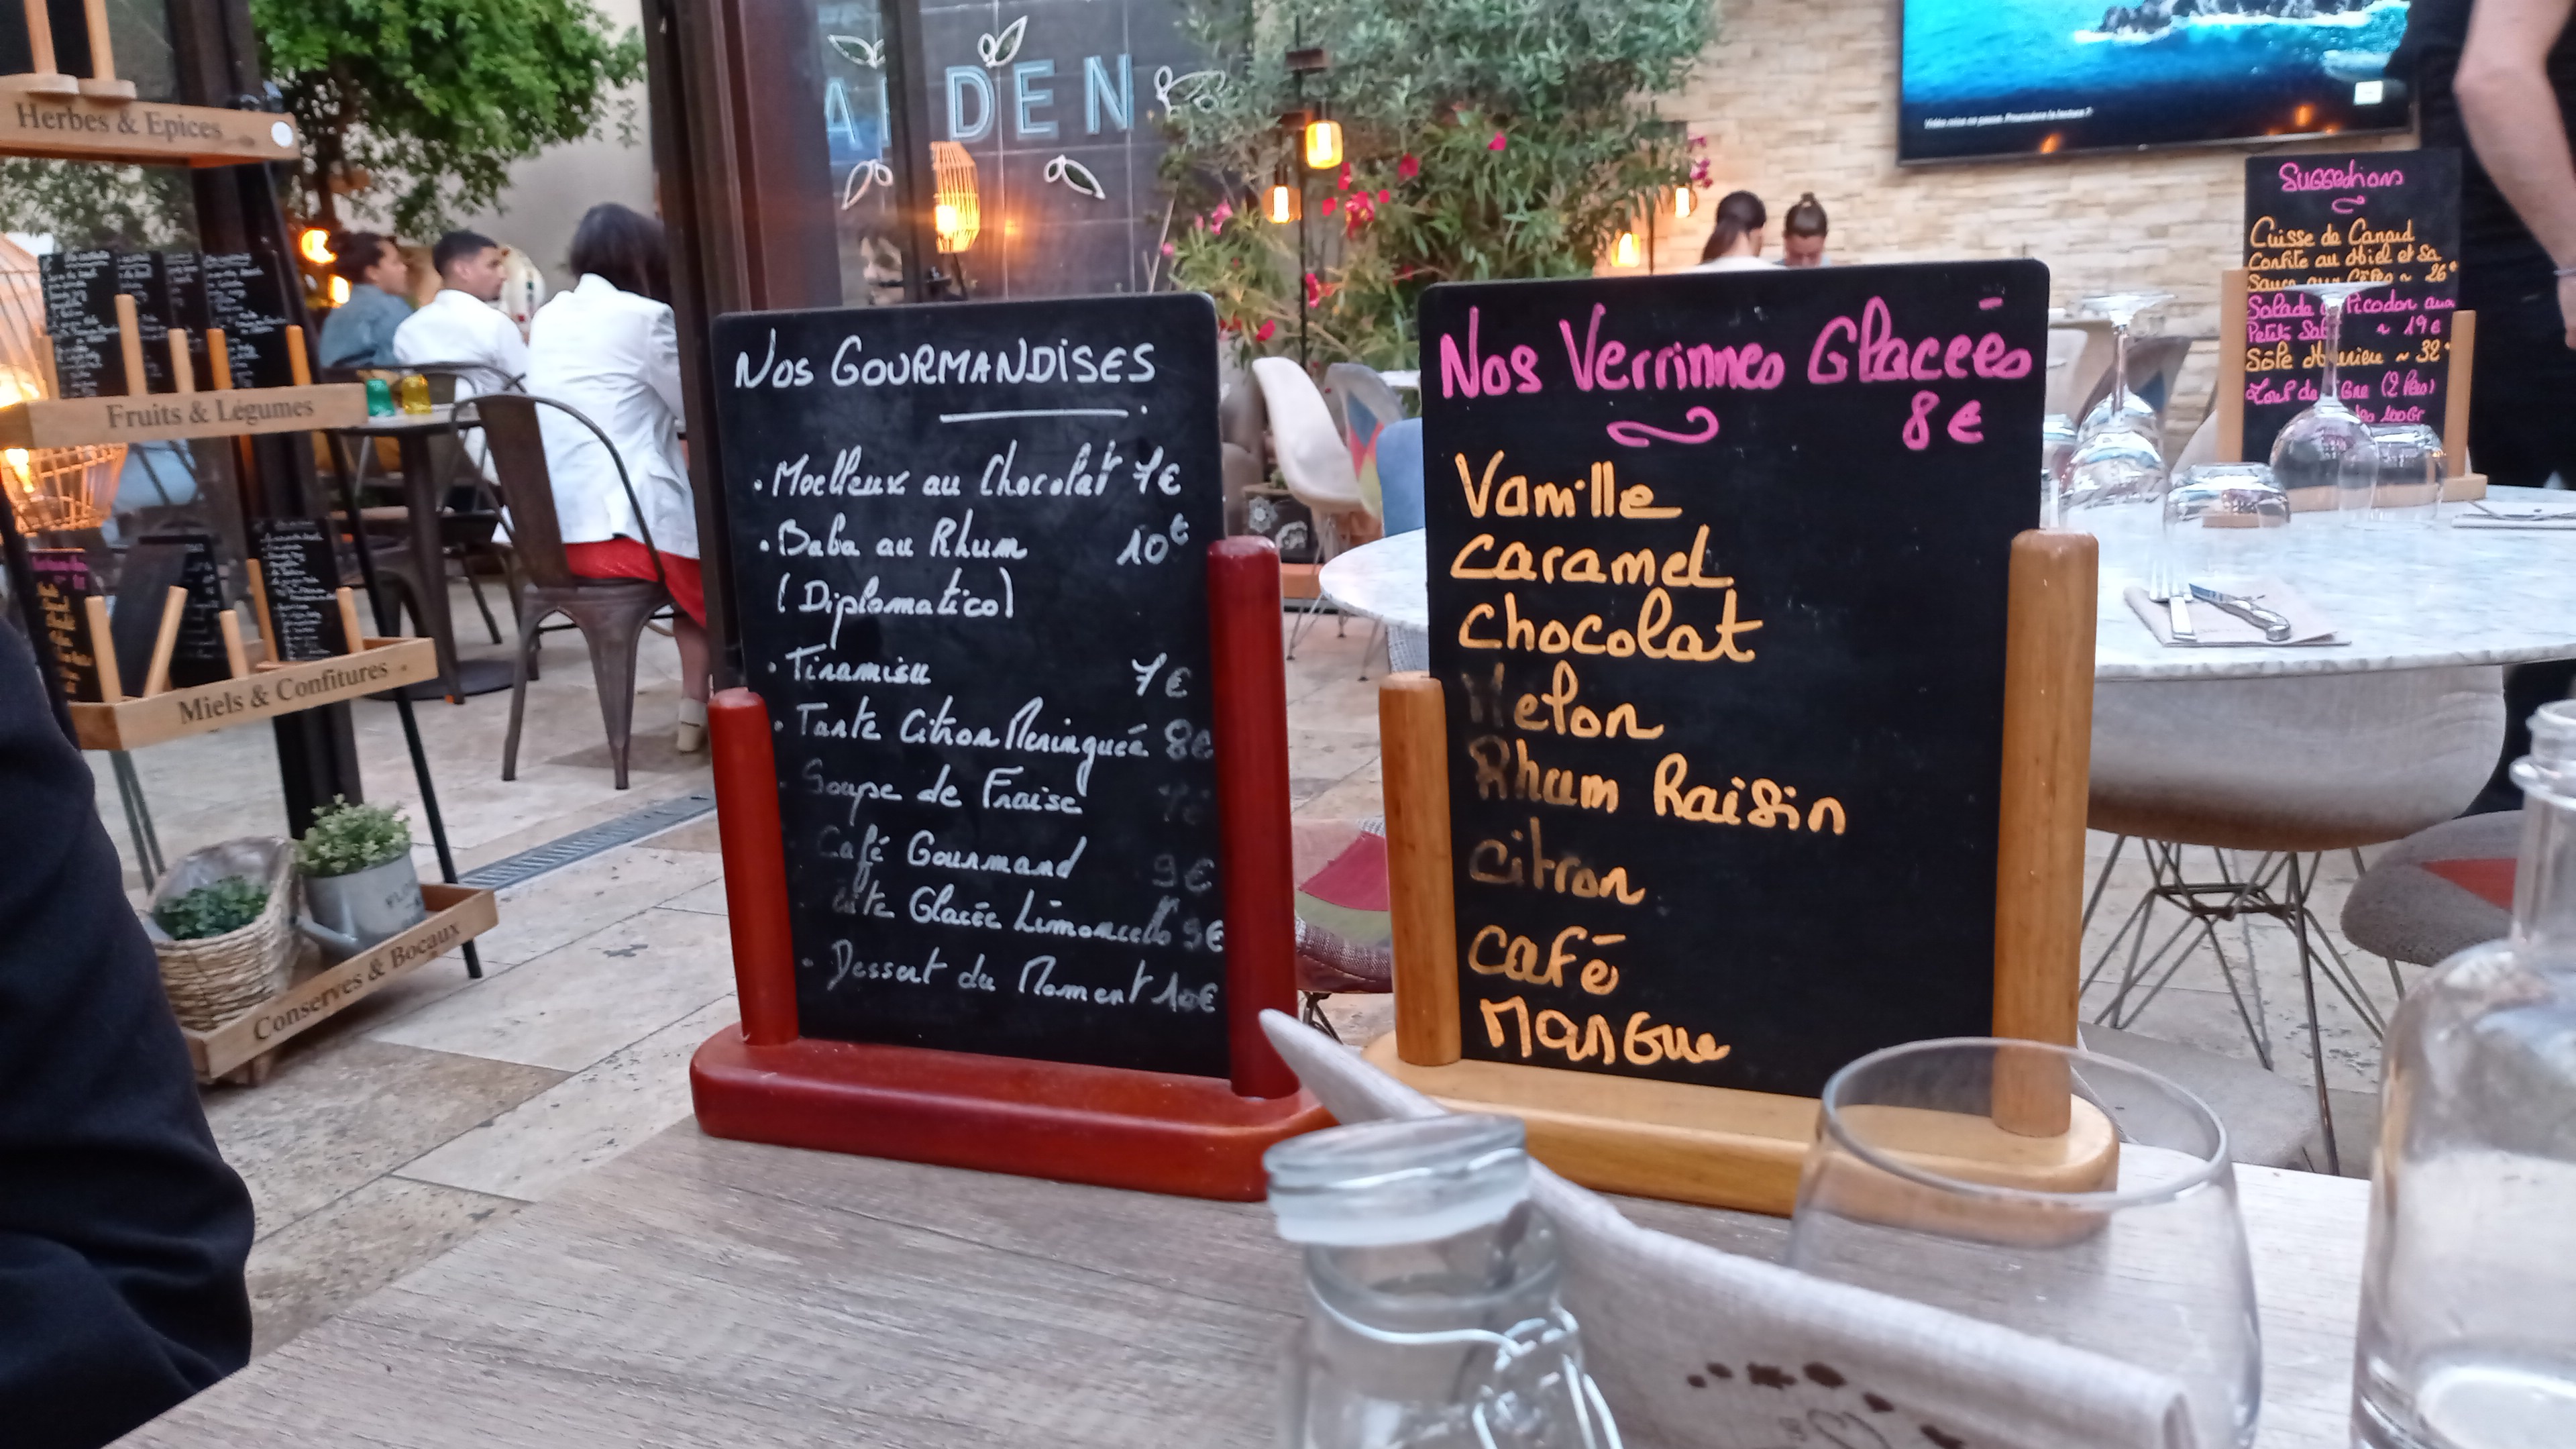 Herbes & Epices
Fruits & Légumes
Miels & Confitures
Conserves & Bocaux
DEN
Nos GOURMANDISES
. Moelleux au Chocolat 7€
. Baba au Rhum 10€
(Diplomatico)
. Tiramisu 7€
. Tarte Citron Meringuée 8€
Soupe de Fraise 7€
Café Gourmand 9€
Glacée Limoncello 9€
. Dessert du Moment 10€
Nos Verrinnes Glaceés
8€
Vanille
Caramel
Chocolat
Melon
Rhum Raisin
Citron
Café
Mangue
Vidéo mise en pause. Poursuivre la lecture ?
Suggestions
Cuisse de Canard
Confite au Miel et sa
Sauce aux Cèpes ~ 26€
Salade Picodon aux
Petits ~ 19€
Sôle Meunière ~ 32€
Loup de (2 Pers)
100Gr